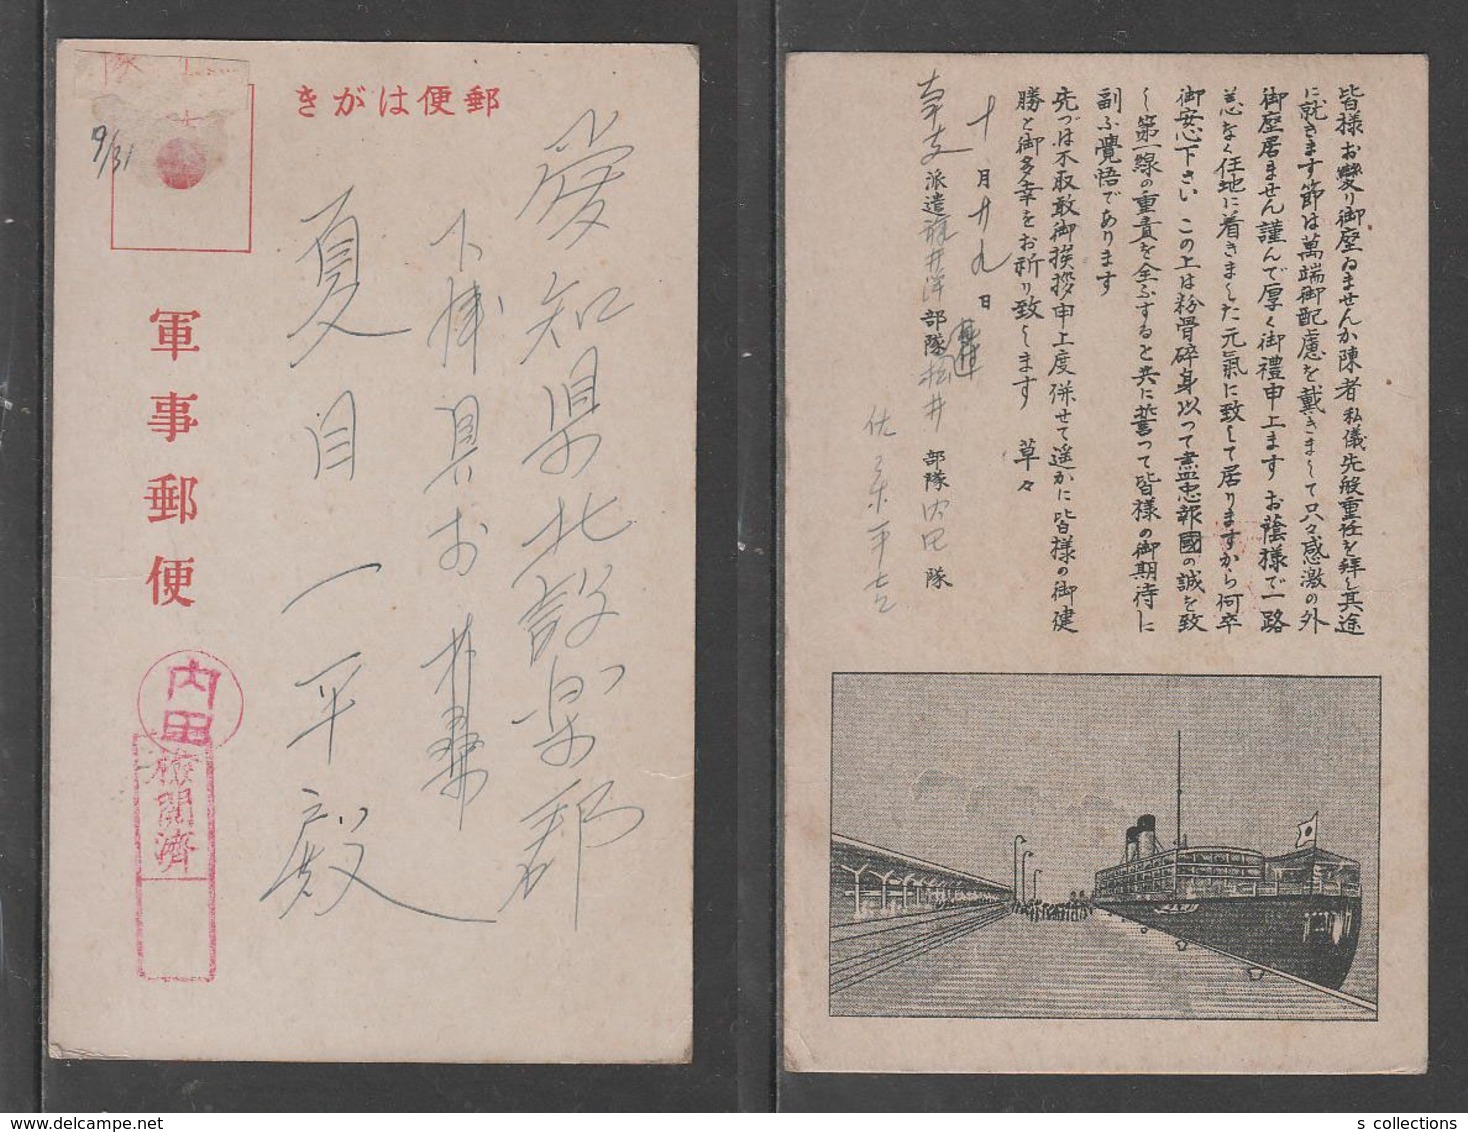 郵便はがき
9/31
軍事郵便
内田
検閲済
愛知県北設楽郡
下津具村
夏目一平殿
皆様お変り御座ゐませんか陳者私儀先般重任を拝し其途
に就きます節は萬端御配慮を戴きまして只々感激の外
御座居ません謹んで厚く御禮申上ますお蔭様で一路
恙なく任地に着きました元氣に致して居りますから何卒
御安心下さいこの上は粉骨碎身以って盡忠報國の誠を致
し第一線の重責を全ふすると共に誓って皆様の御期待に
副ふ覺悟であります
先づは不取敢御挨拶申上度併せて遥かに皆様の御健
勝と御多幸をお祈り致します 草々
十月廿九日
派遣 部隊松井部隊内田隊
s collections